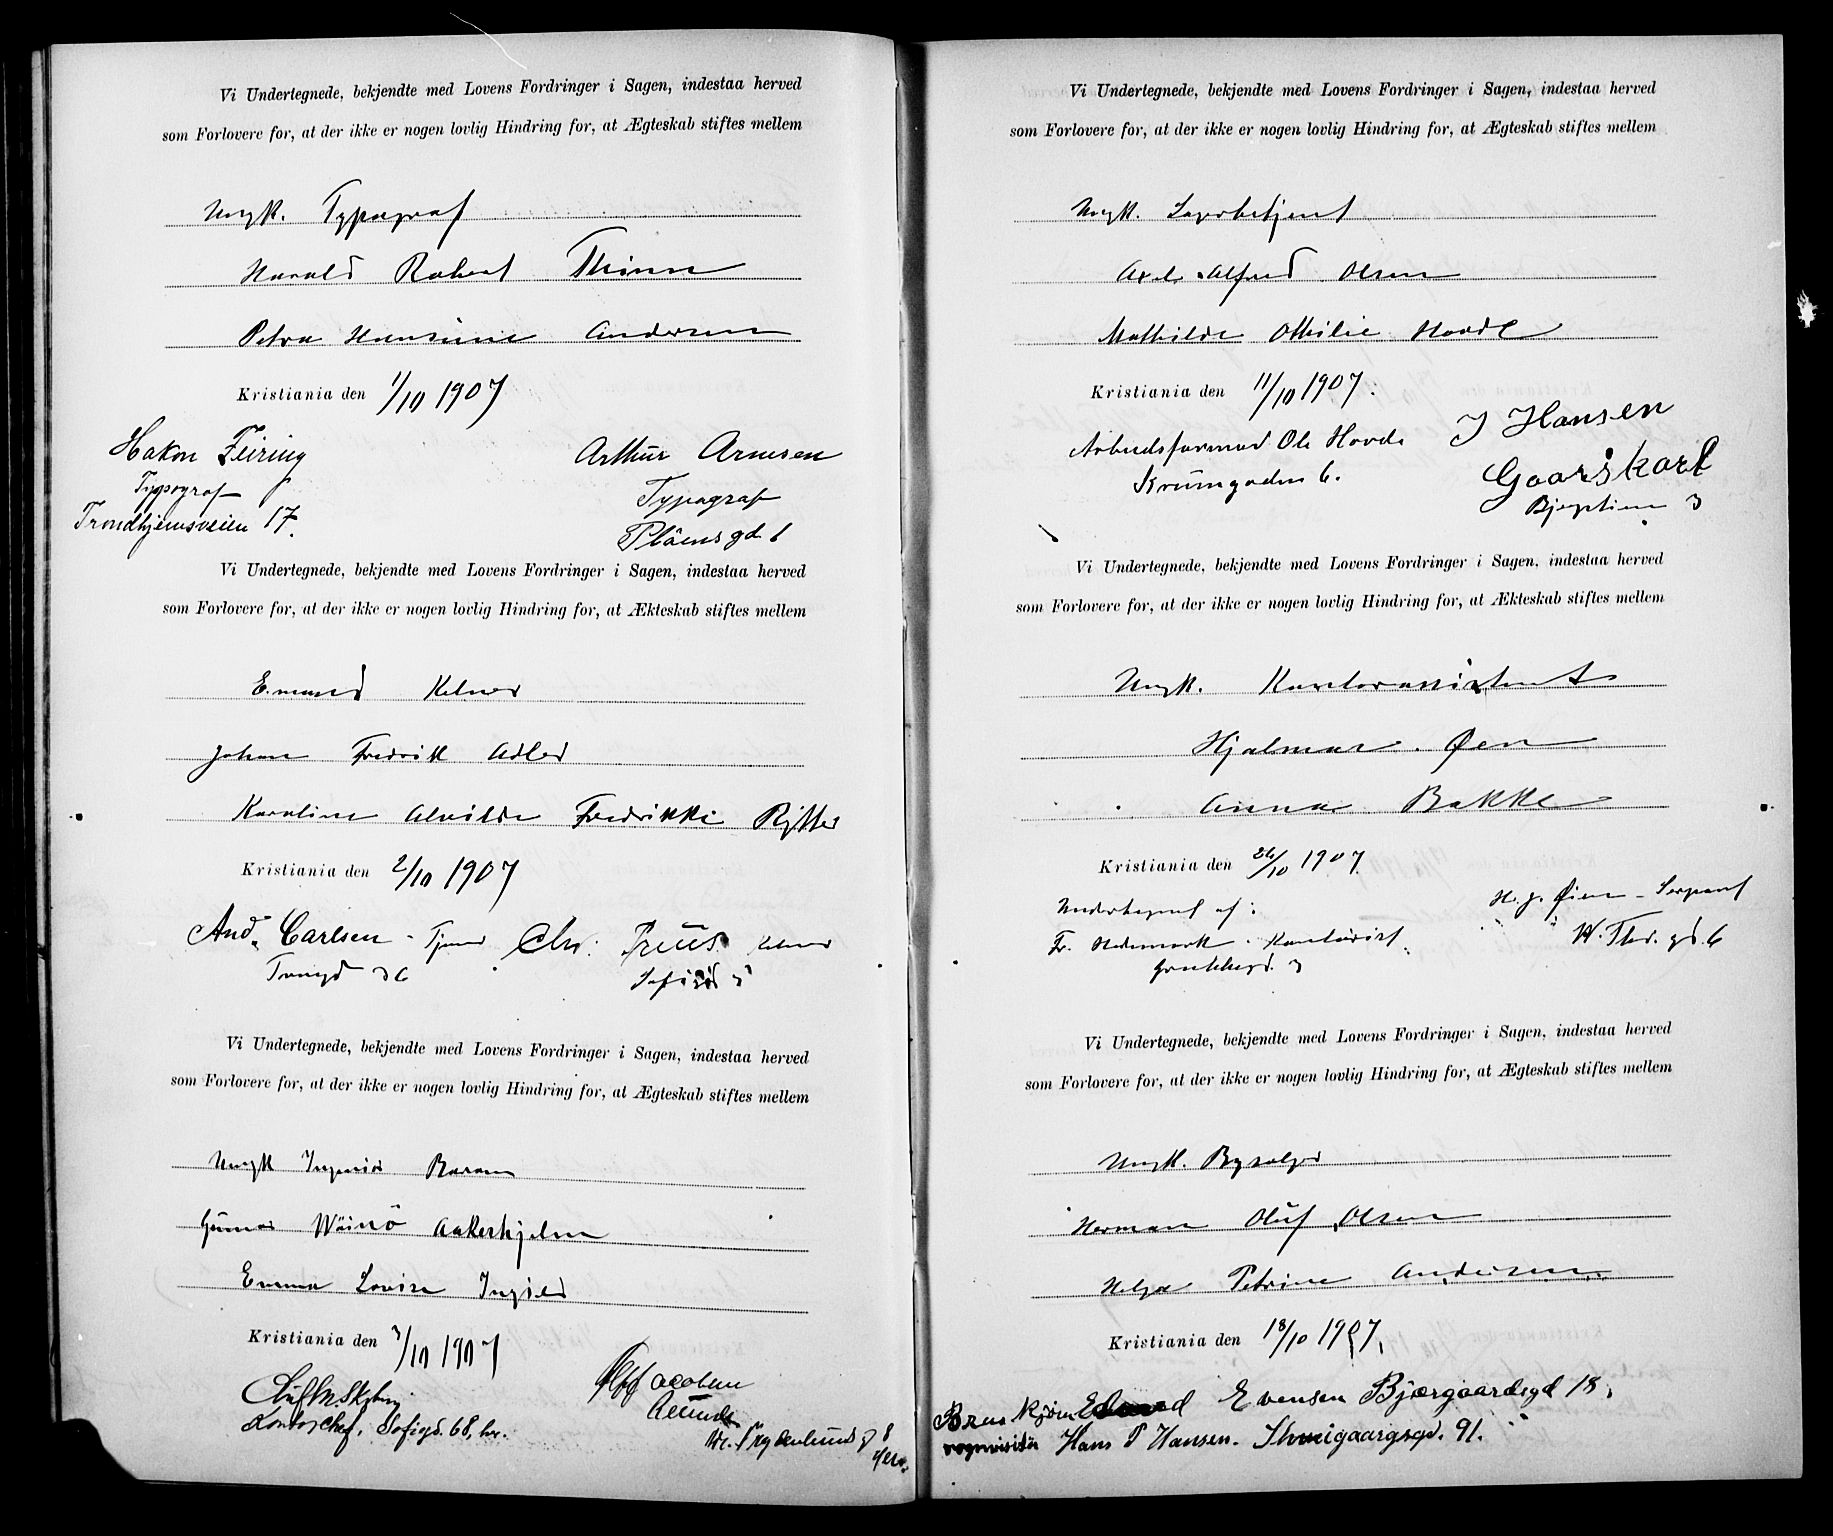 Vi Undertegnede, bekjendte med Lovens Fordringer i Sagen, indestaa herved
som Forlovere for, at der ikke er nogen lovlig Hindring for, at Ægteskab stiftes mellem
Ungk. Typograf
Harald Robert Thinn
Petra Hansine Andersen
Kristiania den 1/10 1907
Hakon Feiring
Typograf
Trondhjemsveien 17.
Arthur Arnesen
Typograf
Plöensgd 1
Vi Undertegnede, bekjendte med Lovens Fordringer i Sagen, indestaa herved
som Forlovere for, at der ikke er nogen lovlig Hindring for, at Ækteskab stiftes mellem
Kelner
Johan Fredrik Adler
Karoline Alvilde Fredrikke Rytter
Kristiania den 2/10 1907
And. Carlsen
36
Chr. Preus Kelner
Vi Undertegnede, bekjendte med Lovens Fordringer i Sagen, indestaa herved
som Forlovere for, at der ikke er nogen lovlig Hindring for, at Ægteskab stiftes mellem
Ungk Ingeniør Baron
Gunnar Wäinö Aakerhjelm
Emma Lovise Ingier
Kristiania den 3/10 1907
Kontorchef, Sofiegd. 68, hr.
Jacobsen
Vi Undertegnede, bekjendte med Lovens Fordringer i Sagen, indestaa herved
som Forlovere for, at der ikke er nogen lovlig Hindring for, at Ægteskab stiftes mellem
Ungk. Lagerbetjent
Axel Alfred Olsen
Mathilde Othilie Hovde
Kristiania den 11/10 1907.
Arbeidsformand Ole Hovde
Krumgaden 6.
J Hansen
Gaardskarl
3
Vi Undertegnede, bekjendte med Lovens Fordringer i Sagen, indestaa herved
som Forlovere for, at der ikke er nogen lovlig Hindring for, at Ækteskab stiftes mellem
Ungk. Kontorassistent
Hjalmar Øen
Anna Bakke
Kristiania den 26/10 1907.
Undertegnet af:
Fr. Hedemark. Kontorist.
3
H. J. Øien - Sergeant
W. Thr. gd. 6
Vi Undertegnede, bekjendte med Lovens Fordringer i Sagen, indestaa herved
som Forlovere for, at der ikke er nogen lovlig Hindring for, at Ægteskab stiftes mellem
Ungk. Bysælger
Herman Oluf Olsen
Helga Petrine Andersen
Kristiania den 18/10 1907.
Evensen Bjærgaardsgd 18.
Hans P Hansen. 91.